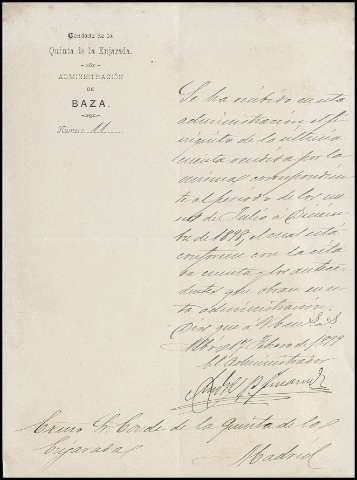 Condado de la
Quinta de la Enjarada.
ADMINISTRACIÓN
DE
BAZA.
Número 11
Se ha recibido en esta
administración el fi-
niquito de la última
cuenta rendida por la
misma correspondien-
te al período de los me-
ses de Julio á Diciem-
bre de 1898, el cual está
conforme con la cita-
da cuenta y los antece-
dentes que obran en es-
ta administración.
Dios gue á V. E.
1º Febrero de 1899
El Administrador
Excmo Sr. Conde de la Quinta de la
Enjarada
Madrid